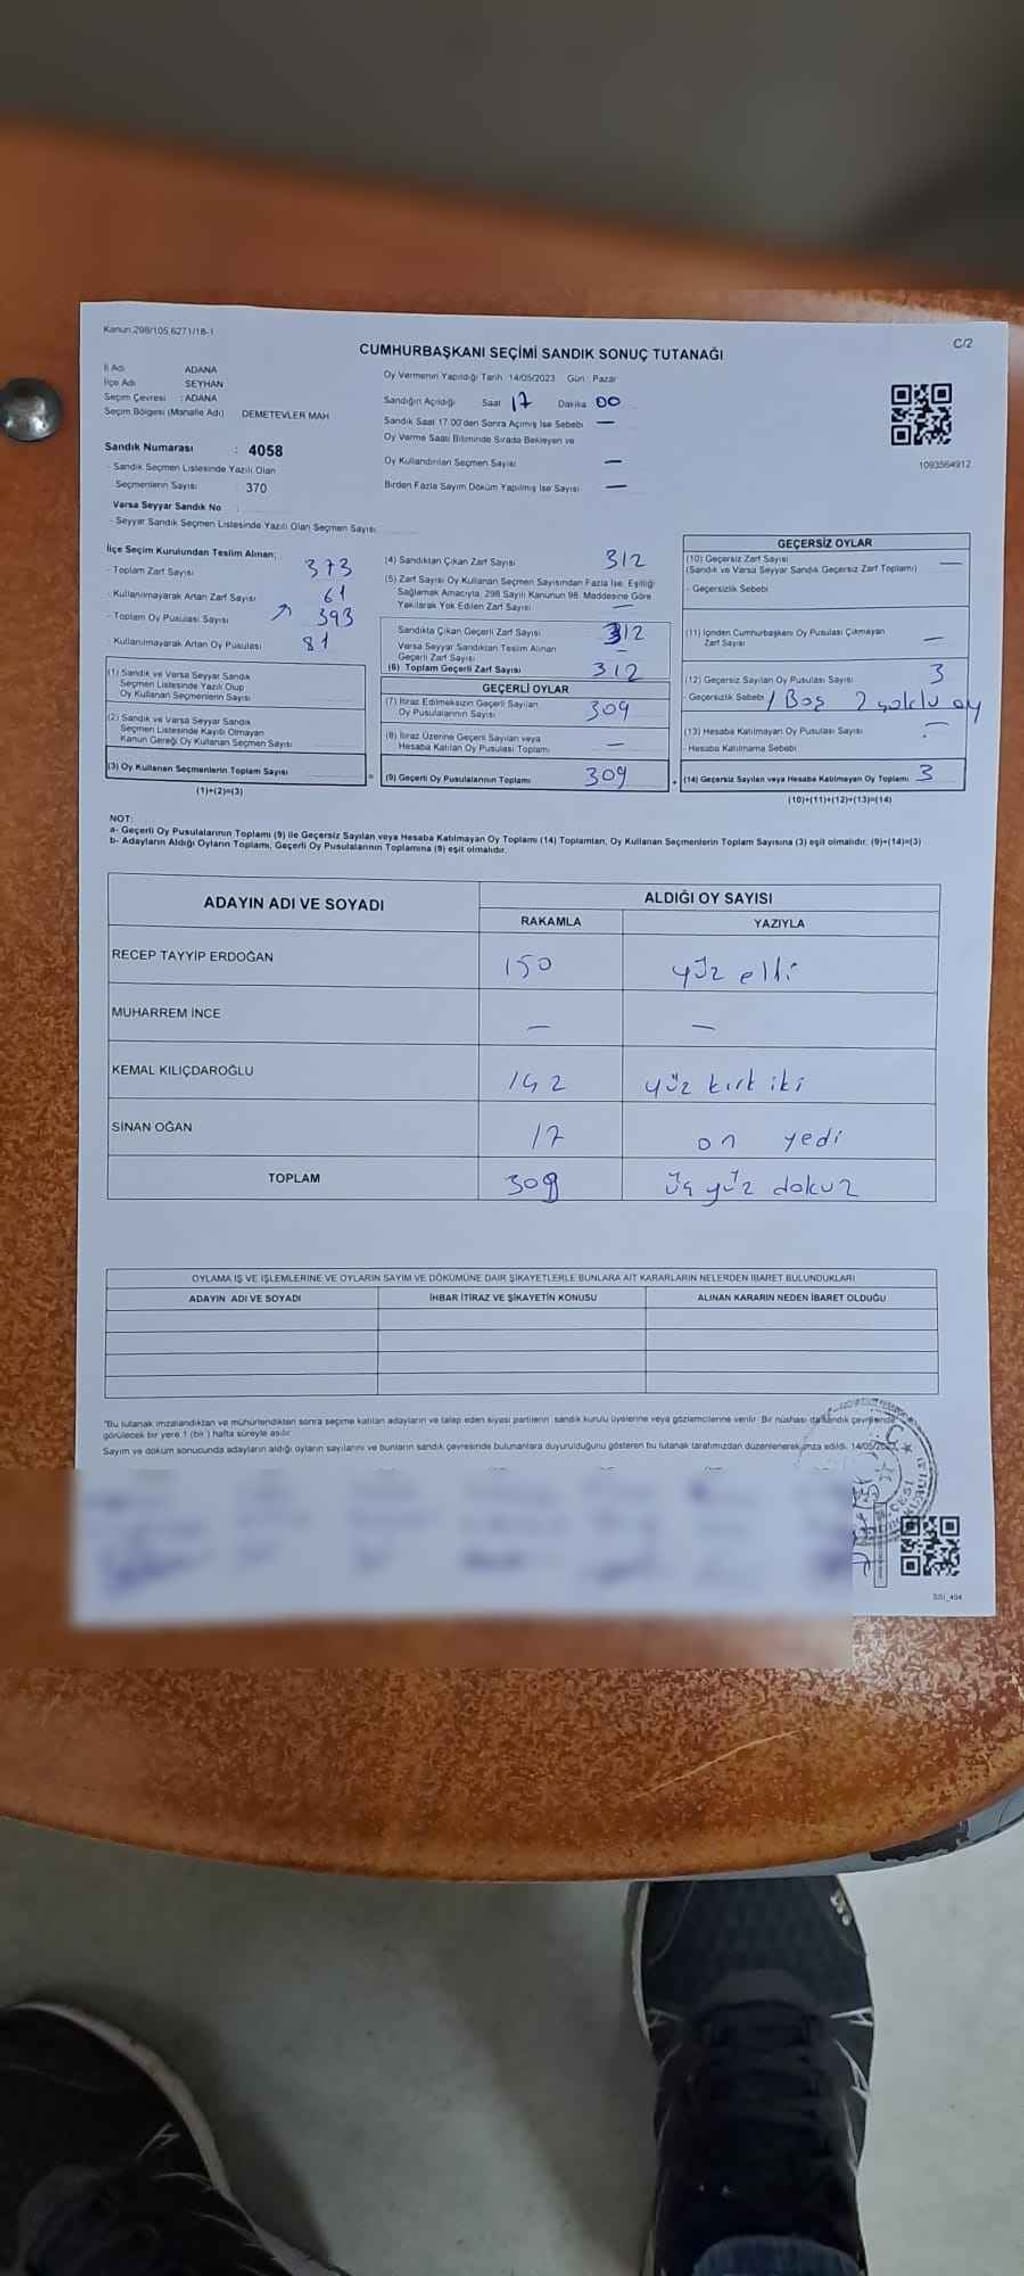 Kanun.298/105,6271/18-1
C/2
CUMHURBAŞKANI SEÇİMİ SANDIK SONUÇ TUTANAĞI
İl Adı ADANA
İlçe Adı SEYHAN
Seçim Çevresi : ADANA
Seçim Bölgesi (Mahalle Adı) DEMETEVLER MAH
Sandık Numarası : 4058
- Sandık Seçmen Listesinde Yazılı Olan
Seçmenlerin Sayısı 370
Varsa Seyyar Sandık No
- Seyyar Sandık Seçmen Listesinde Yazılı Olan Seçmen Sayısı
Oy Vermenin Yapıldığı Tarih: 14/05/2023 Gün: Pazar
Sandığın Açıldığı Saat 17 Dakika 00
Sandık Saat 17.00'den Sonra Açımış İse Sebebi —
Oy Verme Saati Bitiminde Sırada Bekleyen ve
Oy Kullandırılan Seçmen Sayısı —
Birden Fazla Sayım Döküm Yapılmış İse Sayısı —
1093564912
İlçe Seçim Kurulundan Teslim Alınan;
- Toplam Zarf Sayısı 373
- Kullanılmayarak Artan Zarf Sayısı 61
- Toplam Oy Pusulası Sayısı 393
- Kullanılmayarak Artan Oy Pusulası 81
(1) Sandık ve Varsa Seyyar Sandık
Seçmen Listesinde Yazılı Olup
Oy Kullanan Seçmenlerin Sayısı
(2) Sandık ve Varsa Seyyar Sandık
Seçmen Listesinde Kayıtlı Olmayan
Kanun Gereği Oy Kullanan Seçmen Sayısı
(3) Oy Kullanan Seçmenlerin Toplam Sayısı
(1)+(2)=(3)
(4) Sandıktan Çıkan Zarf Sayısı 312
(5) Zarf Sayısı Oy Kullanan Seçmen Sayısından Fazla İse, Eşitliği
Sağlamak Amacıyla, 298 Sayılı Kanunun 98. Maddesine Göre
Yakılarak Yok Edilen Zarf Sayısı —
Sandıkta Çıkan Geçerli Zarf Sayısı 312
Varsa Seyyar Sandıktan Teslim Alınan
Geçerli Zarf Sayısı —
(6) Toplam Geçerli Zarf Sayısı 312
GEÇERLİ OYLAR
(7) İtiraz Edilmeksizin Geçerli Sayılan
Oy Pusulalarının Sayısı 309
(8) İtiraz Üzerine Geçerli Sayılan veya
Hesaba Katılan Oy Pusulası Toplamı —
= (9) Geçerli Oy Pusulalarının Toplamı 309
GEÇERSİZ OYLAR
(10) Geçersiz Zarf Sayısı —
(Sandık ve Varsa Seyyar Sandık Geçersiz Zarf Toplamı)
- Geçersizlik Sebebi
(11) İçinden Cumhurbaşkanı Oy Pusulası Çıkmayan
Zarf Sayısı —
(12) Geçersiz Sayılan Oy Pusulası Sayısı 3
- Geçersizlik Sebebi 1 Boş 2 çoklu oy
(13) Hesaba Katılmayan Oy Pusulası Sayısı —
- Hesaba Katılmama Sebebi
+ (14) Geçersiz Sayılan veya Hesaba Katılmayan Oy Toplamı 3
(10)+(11)+(12)+(13)=(14)
NOT:
a- Geçerli Oy Pusulalarının Toplamı (9) ile Geçersiz Sayılan veya Hesaba Katılmayan Oy Toplamı (14) Toplamları, Oy Kullanan Seçmenlerin Toplam Sayısına (3) eşit olmalıdır. (9)+(14)=(3)
b- Adayların Aldığı Oyların Toplamı, Geçerli Oy Pusulalarının Toplamına (9) eşit olmalıdır.
ADAYIN ADI VE SOYADI
ALDIĞI OY SAYISI
RAKAMLA YAZIYLA
RECEP TAYYİP ERDOĞAN 150 yüz elli
MUHARREM İNCE — —
KEMAL KILIÇDAROĞLU 142 yüz kırk iki
SİNAN OĞAN 17 on yedi
TOPLAM 309 üç yüz dokuz
OYLAMA İŞ VE İŞLEMLERİNE VE OYLARIN SAYIM VE DÖKÜMÜNE DAİR ŞİKAYETLERLE BUNLARA AİT KARARLARIN NELERDEN İBARET BULUNDUKLARI
ADAYIN ADI VE SOYADI İHBAR İTİRAZ VE ŞİKAYETİN KONUSU ALINAN KARARIN NEDEN İBARET OLDUĞU
"Bu tutanak imzalandıktan ve mühürlendikten sonra seçime katılan adayların ve talep eden siyasi partilerin sandık kurulu üyelerine veya gözlemcilerine verilir. Bir nüshası da sandık çevresinde
görülecek bir yere 1 (bir ) hafta süreyle asılır.
Sayım ve döküm sonucunda adayların aldığı oyların sayılarını ve bunların sandık çevresinde bulunanlara duyurulduğunu gösteren bu tutanak tarafımızdan düzenlenerek imza edildi. 14/05/2023